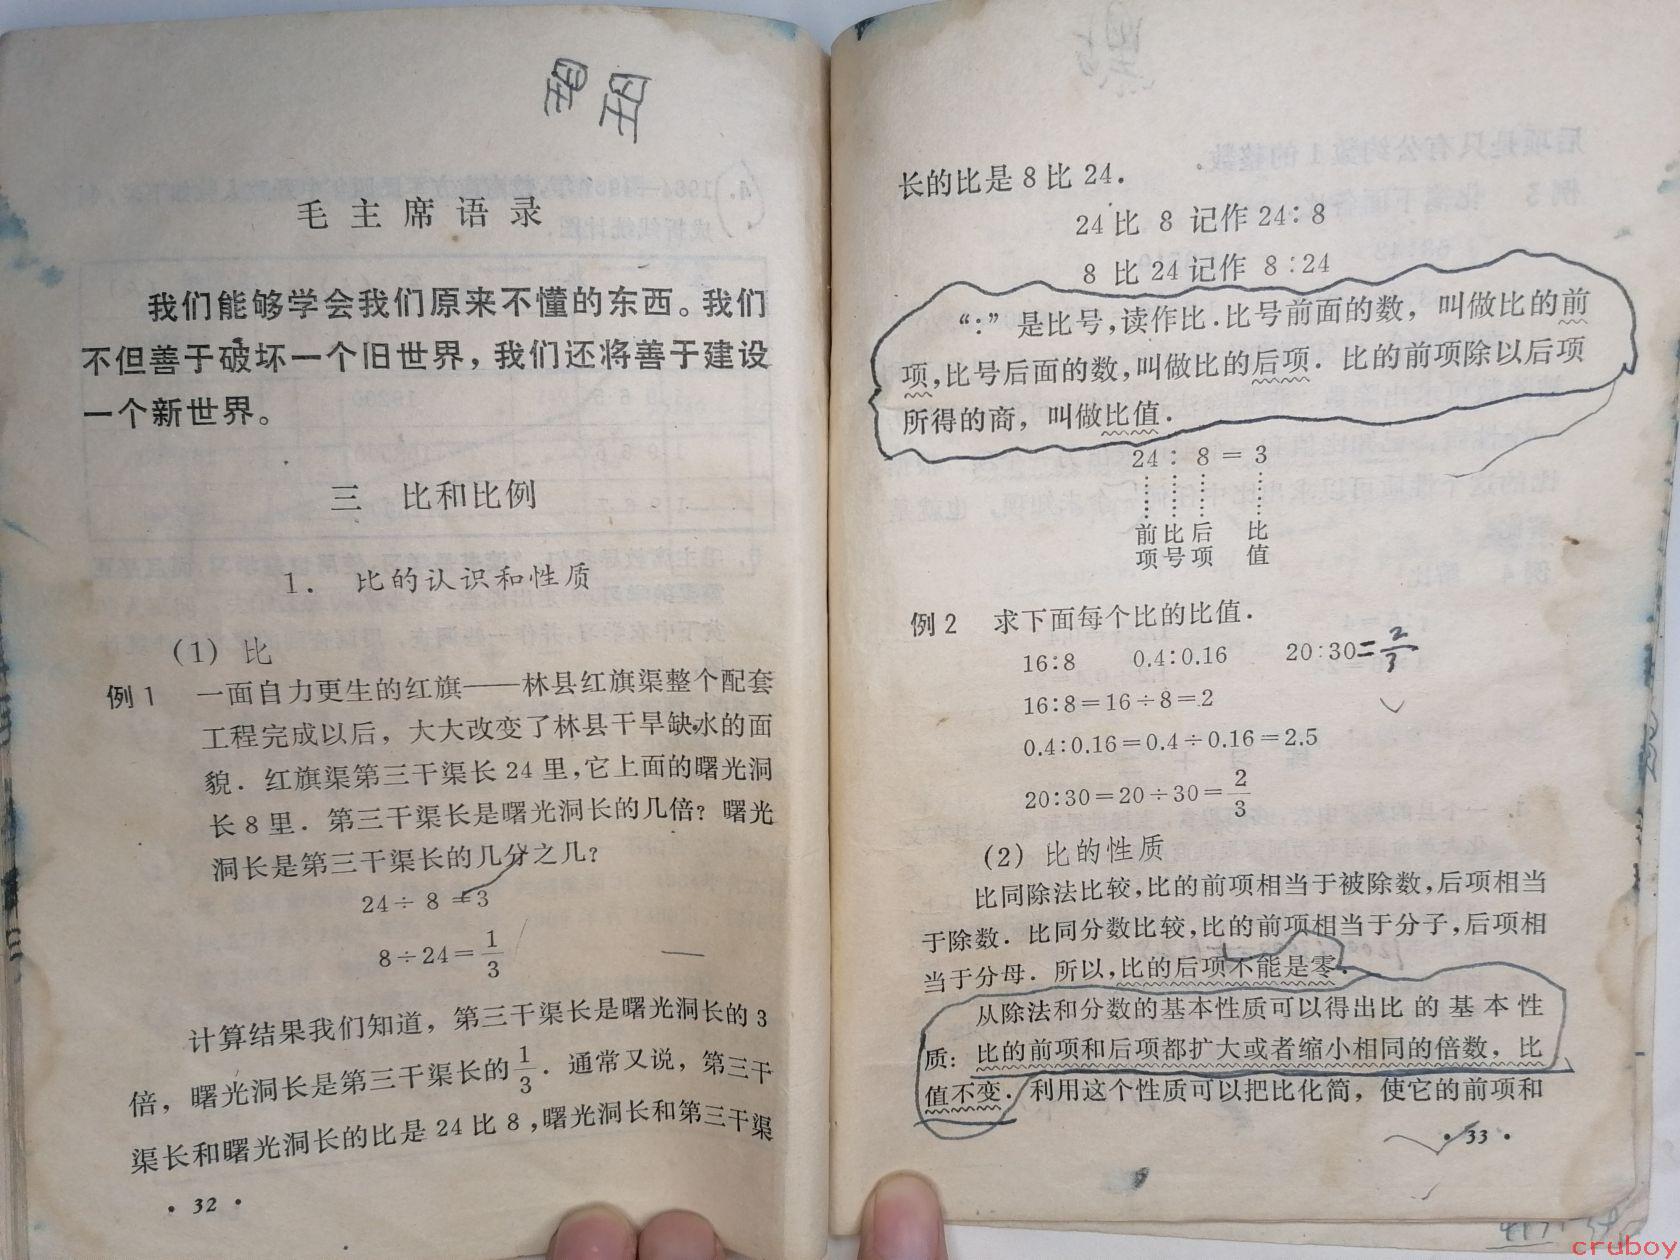 毛主席语录
我们能够学会我们原来不懂的东西。我们
不但善于破坏一个旧世界，我们还将善于建设
一个新世界。
三 比和比例
1. 比的认识和性质
(1) 比
例1 一面自力更生的红旗——林县红旗渠整个配套
工程完成以后，大大改变了林县干旱缺水的面
貌．红旗渠第三干渠长24里，它上面的曙光洞
长8里．第三干渠长是曙光洞长的几倍？曙光
洞长是第三干渠长的几分之几？
24÷8=3
8÷24=1/3
计算结果我们知道，第三干渠长是曙光洞长的3
倍，曙光洞长是第三干渠长的1/3．通常又说，第三干
渠长和曙光洞长的比是24比8，曙光洞长和第三干渠
·32·
长的比是8比24．
24比8记作24:8
8比24记作8:24
“:”是比号，读作比．比号前面的数，叫做比的前
项，比号后面的数，叫做比的后项．比的前项除以后项
所得的商，叫做比值．
24:8=3
前项 比号 后项 比值
例2 求下面每个比的比值．
16:8 0.4:0.16 20:30=2/3
16:8=16÷8=2
0.4:0.16=0.4÷0.16=2.5
20:30=20÷30=2/3
(2) 比的性质
比同除法比较，比的前项相当于被除数，后项相当
于除数．比同分数比较，比的前项相当于分子，后项相
当于分母．所以，比的后项不能是零．
从除法和分数的基本性质可以得出比的基本性
质：比的前项和后项都扩大或者缩小相同的倍数，比
值不变．利用这个性质可以把比化简，使它的前项和
·33·
cruboy